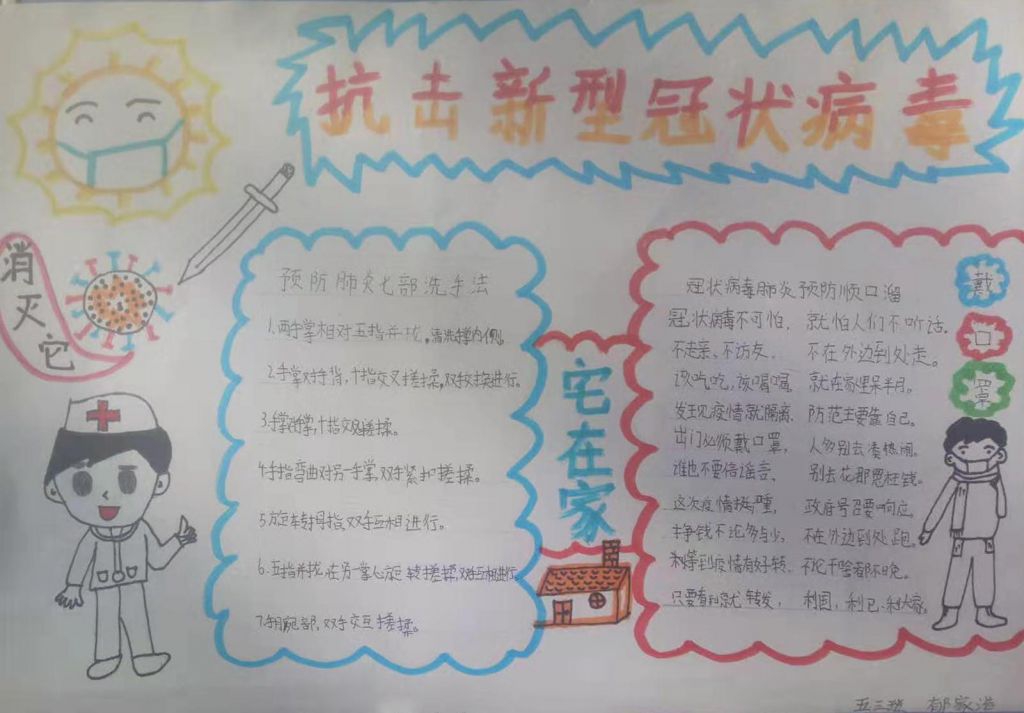 抗击新型冠状病毒
消灭它
预防肺炎七部洗手法
1.两手掌相对五指并拢。清洗掌内侧。
2.手掌对手背,十指交叉搓揉。双手交换进行。
3.掌对掌,十指交叉搓揉。
4.手指弯曲对另一手掌,双手紧扣搓揉。
5.旋转拇指,双手互相进行。
6.五指并拢,在另掌心旋转搓揉,双手互相进行。
7.手腕部,双手交互搓揉。
宅在家
冠状病毒肺炎预防顺口溜
冠状病毒不可怕, 就怕人们不听话。
不走亲、不访友、 不在外边到处走。
该吃吃,该喝喝, 就在家里呆半月。
发现疫情就隔离、 防范主要靠自己。
出门必须戴口罩, 人多别去凑热闹。
谁也不要信谣言、 别去花那冤枉钱。
这次疫情挺严重, 政府号召要响应。
挣钱不论多与少, 不在外边到处跑。
等到疫情有好转、 不论干啥都不晚。
只要看到就转发, 利国,利己,利大家。
戴
口
罩
五三班 郁家